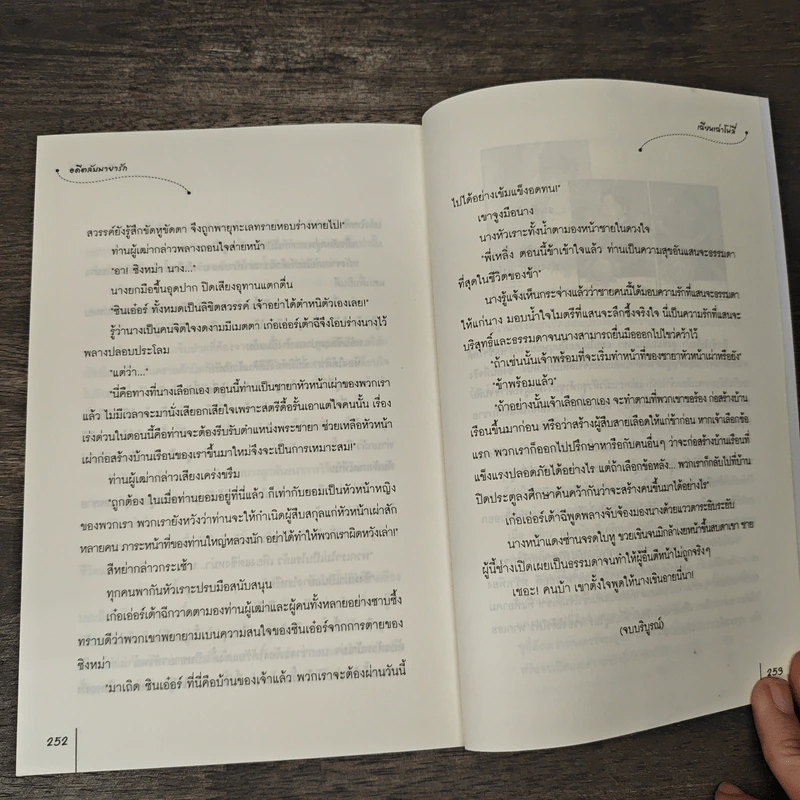 อดีตสัมพายารัก
สวรรค์ยังรู้สึกขัดหูขัดตา จึงถูกพายุทะเลทรายหอบร่างหายไป!"
ท่านผู้เฒ่ากล่าวพลางถอนใจส่ายหน้า
"อา! ซิงหม่า นาง..."
นางยกมือขึ้นอุดปาก ปิดเสียงอุทานแตกตื่น
"ซินเอ๋อร์ ทั้งหมดเป็นลิขิตสวรรค์ เจ้าอย่าได้ตำหนิตัวเองเลย!"
รู้ว่านางเป็นคนจิตใจงดงามมีเมตตา เก๋อเอ่อร์เต้าฉีจึงโอบร่างนางไว้
พลางปลอบประโลม
"แต่ว่า..."
"นี่คือทางที่นางเลือกเอง ตอนนี้ท่านเป็นชายาหัวหน้าเผ่าของพวกเรา
แล้ว ไม่มีเวลาจะมานั่งเสียอกเสียใจเพราะสตรีดื้อรั้นเอาแต่ใจคนนั้น เรื่อง
เร่งด่วนในตอนนี้คือท่านจะต้องรีบรับตำแหน่งพระชายา ช่วยเหลือหัวหน้า
เผ่าก่อสร้างบ้านเรือนของเราขึ้นมาใหม่จึงจะเป็นการเหมาะสม!"
ท่านผู้เฒ่ากล่าวเสียงเคร่งขรึม
"ถูกต้อง ในเมื่อท่านยอมอยู่ที่นี่แล้ว ก็เท่ากับยอมเป็นหัวหน้าหญิง
ของพวกเรา พวกเรายังหวังว่าท่านจะให้กำเนิดผู้สืบสกุลแก่หัวหน้าเผ่าสัก
หลายคน ภาระหน้าที่ของท่านใหญ่หลวงนัก อย่าได้ทำให้พวกเราผิดหวังเล่า!"
สีหย่ากล่าวกระเซ้า
ทุกคนพากันหัวเราะปรบมือสนับสนุน
เก๋อเอ่อร์เต้าฉีกวาดตามองท่านผู้เฒ่าและผู้คนทั้งหลายอย่างซาบซึ้ง
ทราบดีว่าพวกเขาพยายามเบนความสนใจของซินเอ๋อร์จากการตายของ
ซิงหม่า
"มาเถิด ซินเอ๋อร์ ที่นี่คือบ้านของเจ้าแล้ว พวกเราจะต้องผ่านวันนี้
252
ไปได้อย่างเข้มแข็งอดทน!"
เขาจูงมือนาง
นางหัวเราะทั้งน้ำตามองหน้าชายในดวงใจ
"พี่เหลิ่ง ตอนนี้ข้าเข้าใจแล้ว ท่านเป็นความสุขอันแสนจะธรรมดา
ที่สุดในชีวิตของข้า"
นางรู้แจ้งเห็นกระจ่างแล้วว่าชายคนนี้ได้มอบความรักที่แสนจะธรรมดา
ให้แก่นาง มอบน้ำใจไมตรีที่แสนจะลึกซึ้งจริงใจ นี่เป็นความรักที่แสนจะ
บริสุทธิ์และธรรมดาจนนางสามารถยื่นมือออกไปไขว่คว้าไว้
"ถ้าเช่นนั้นเจ้าพร้อมที่จะเริ่มทำหน้าที่ของชายาหัวหน้าเผ่าหรือยัง"
"ข้าพร้อมแล้ว"
"ถ้าอย่างนั้นเจ้าเลือกเอาเอง จะทำตามที่พวกเขาขอร้อง ก่อสร้างบ้าน
เรือนขึ้นมาก่อน หรือว่าสร้างผู้สืบสายเลือดให้แก่ข้าก่อน หากเจ้าเลือกข้อ
แรก พวกเราก็ออกไปปรึกษาหารือกับคนอื่นๆ ว่าจะก่อสร้างบ้านเรือนที่
แข็งแรงปลอดภัยได้อย่างไร แต่ถ้าเลือกข้อหลัง... พวกเราก็กลับไปที่บ้าน
ปิดประตูลงศึกษาค้นคว้ากันว่าจะสร้างคนขึ้นมาได้อย่างไร"
เก๋อเอ่อร์เต้าฉีพูดพลางจับจ้องมองนางด้วยแววตาระยิบระยับ
นางหน้าแดงซ่านจรดใบหู ขวยเขินจนมิกล้าเงยหน้าขึ้นสบตาเขา ชาย
ผู้นี้ช่างเปิดเผยเป็นธรรมดาจนทำให้ผู้อื่นตีหน้าไม่ถูกจริงๆ
เชอะ! คนบ้า เขาตั้งใจพูดให้นางเขินอายนี่นา!
(จบบริบูรณ์)
253